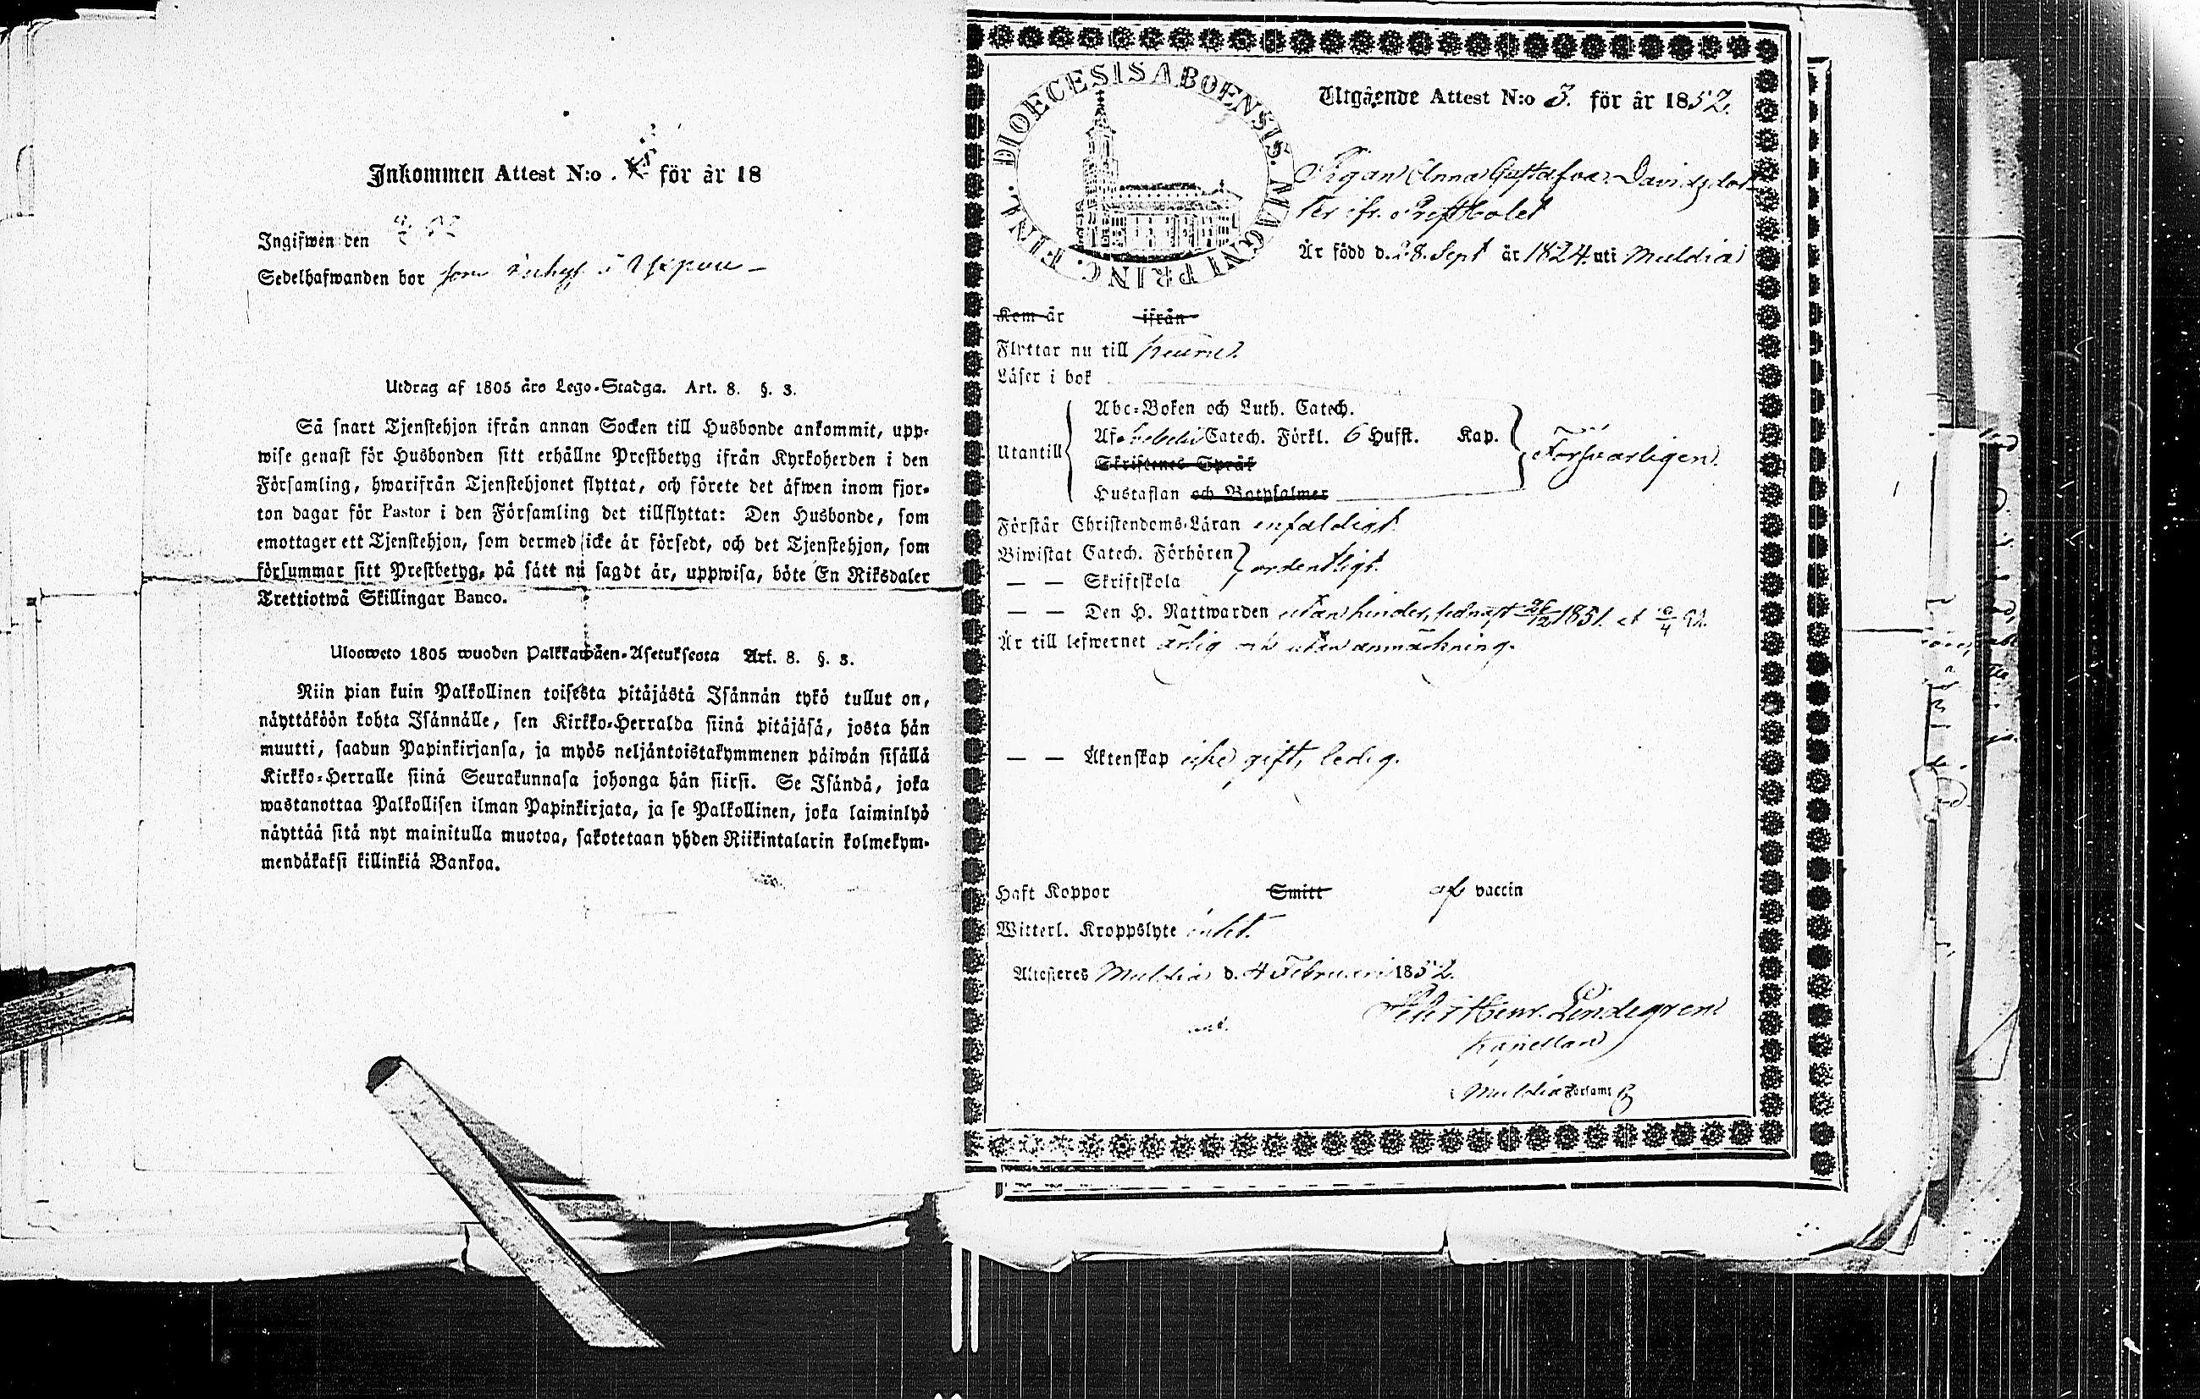 Inkommen Attest N:o för år 18
Ingifwen den
Sedelhafwanden bor som
Utdrag af 1805 års Lego-Stadga. Art. 8. §. 3.
Så snart Tjenstehjon ifrån annan Socken till Husbonde ankommit, upp-
wise genast för Husbonden sitt erhållne Prestbetyg ifrån Kyrkoherden i den
Församling, hwarifrån Tjenstehjonet flyttat, och förete det äfwen inom fjor-
ton dagar för Pastor i den Församling det tillflyttat: Den Husbonde, som
emottager ett Tjenstehjon, som dermed icke är försedt, och det Tjenstehjon, som
försummar sitt Prestbetyg, på sätt nu sagdt är, uppwisa, böte En Riksdaler
Trettiotwå Skillingar Banco.
Ulosweto 1805 wuoden Palkkawäen-Asetuksesta Art. 8. §. 3.
Niin pian kuin Palkollinen toisesta pitäjästä Isännän tykö tullut on,
näyttäköön kohta Isännälle, sen Kirkko-Herralda siinä pitäjäsä, josta hän
muutti, saadun Papinkirjansa, ja myös neljäntoistakymmenen päiwän sisällä
Kirkko-Herralle siinä Seurakunnasa johonga hän siirsi. Se Isändä, joka
wastanottaa Palkollisen ilman Papinkirjata, ja se Palkollinen, joka laiminlyö
näyttää sitä nyt mainitulla muotoa, sakotetaan yhden Riikintalarin kolmekym-
mendäkaksi killinkiä Bankoa.
DIOECESIS ABOENSIS. MAGNI PRINC. FINL.
Utgående Attest N:o 3. för år 1852.
Pigan Anna Gustafva Davidsdot-
ter ifr. Prestbolet
Är född d. 28. Sept år 1824. uti Muldia
Kom är ifrån
Flyttar nu till
Läser i bok
Abc-Boken och Luth. Catech.
Af Catech. Förkl. 6 Husst. Kap.
Utantill Försvarligen.
Skriftenes Språk
Hustaflan och Botpsalmer
Förstår Christendoms-Läran enfaldigt.
Biwistat Catech. Förhören ordentligt.
— — Skriftskola
— — Den H. Nattwarden utan hinder, sednast 1851.
Är till lefwernet ärlig och utan anmärkning.
— — Äktenskap icke gift, ledig.
Haft Koppor Smitt af vaccin
Witterl. Kroppslyte intet.
Attesteres Muldia d. 4 Februari 1852.
Petr Henr. Lindegren
Kapellan
Muldia Församl